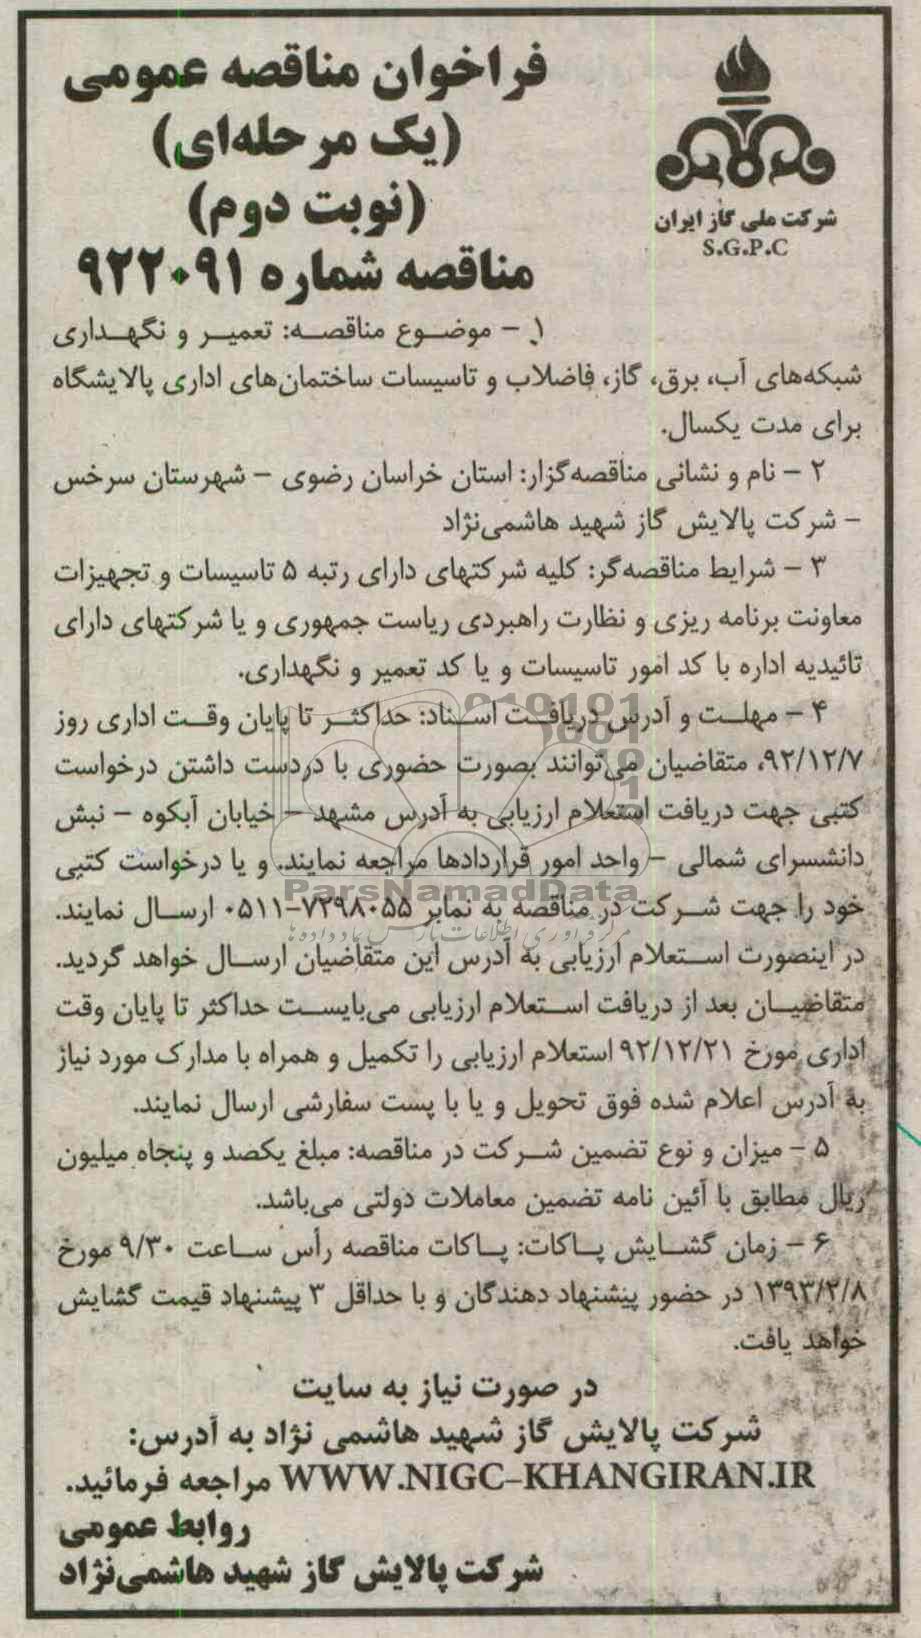 فراخوان مناقصه عمومی
(یک مرحله‌ای)
(نوبت دوم)
مناقصه شماره ۹۲۲۰۹۱
شرکت ملی گاز ایران
S.G.P.C
۱ – موضوع مناقصه: تعمیر و نگهداری
شبکه‌های آب، برق، گاز، فاضلاب و تاسیسات ساختمان‌های اداری پالایشگاه
برای مدت یکسال.
۲ – نام و نشانی مناقصه‌گزار: استان خراسان رضوی – شهرستان سرخس
– شرکت پالایش گاز شهید هاشمی‌نژاد
۳ – شرایط مناقصه‌گر: کلیه شرکتهای دارای رتبه ۵ تاسیسات و تجهیزات
معاونت برنامه ریزی و نظارت راهبردی ریاست جمهوری و یا شرکتهای دارای
تائیدیه اداره با کد امور تاسیسات و یا کد تعمیر و نگهداری.
۴ – مهلت و آدرس دریافت اسناد: حداکثر تا پایان وقت اداری روز
۹۲/۱۲/۷، متقاضیان می‌توانند بصورت حضوری با دردست داشتن درخواست
کتبی جهت دریافت استعلام ارزیابی به آدرس مشهد – خیابان آبکوه – نبش
دانشسرای شمالی – واحد امور قراردادها مراجعه نمایند. و یا درخواست کتبی
خود را جهت شرکت در مناقصه به نمابر ۷۲۹۸۰۵۵–۰۵۱۱ ارسال نمایند.
در اینصورت استعلام ارزیابی به آدرس این متقاضیان ارسال خواهد گردید.
متقاضیان بعد از دریافت استعلام ارزیابی می‌بایست حداکثر تا پایان وقت
اداری مورخ ۹۲/۱۲/۲۱ استعلام ارزیابی را تکمیل و همراه با مدارک مورد نیاز
به آدرس اعلام شده فوق تحویل و یا با پست سفارشی ارسال نمایند.
۵ – میزان و نوع تضمین شرکت در مناقصه: مبلغ یکصد و پنجاه میلیون
ریال مطابق با آئین نامه تضمین معاملات دولتی می‌باشد.
۶ – زمان گشایش پاکات: پاکات مناقصه رأس ساعت ۹/۳۰ مورخ
۱۳۹۳/۲/۸ در حضور پیشنهاد دهندگان و با حداقل ۳ پیشنهاد قیمت گشایش
خواهد یافت.
در صورت نیاز به سایت
شرکت پالایش گاز شهید هاشمی نژاد به آدرس:
WWW.NIGC-KHANGIRAN.IR مراجعه فرمائید.
روابط عمومی
شرکت پالایش گاز شهید هاشمی‌نژاد
ParsNamadData